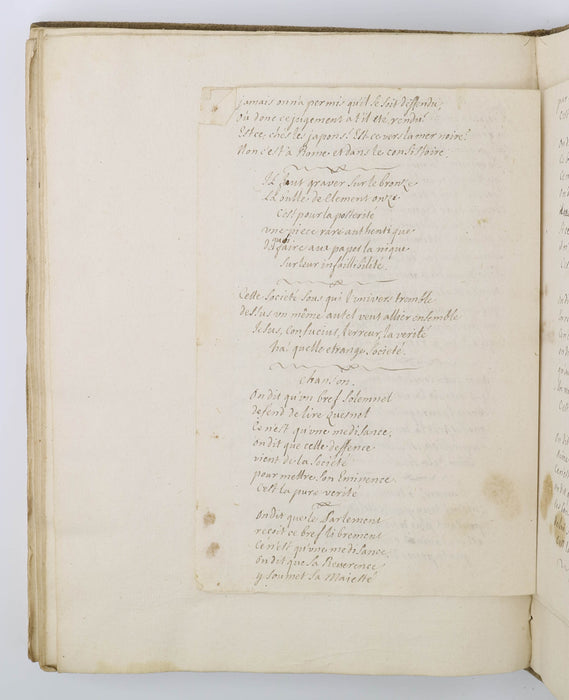 jamais on n'a permis quil se soit deffendu,
Où donc ce jugement a t'il eté rendu?
Est ce, chés les japons? Est ce vers la mer noire?
Non c'est à Rome et dans le consistoire.
Il faut graver sur le bronze
La bulle de Clement onze
C'est pour la posterité
une piece rare authentique
De quoi faire aux papes la nique
Sur leur infaillibilité.
Cette Societé sous qui l'univers tremble
dessus un même autel veut allier ensemble
Jesus, Confucius, l'erreur, la verité
ha! quelle etrange Societé.
Chanson.
On dit qu'un bref Solemnel
defend de lire Quesnel
Ce n'est qu'une medisance,
on dit que cette deffence
vient de la Societé
pour mettre Son Eminence
C'est la pure verité
On dit que le Parlement
recoit ce bref librement
Ce n'est qu'une medisance,
on dit que sa Reverence
y soumet sa Majesté